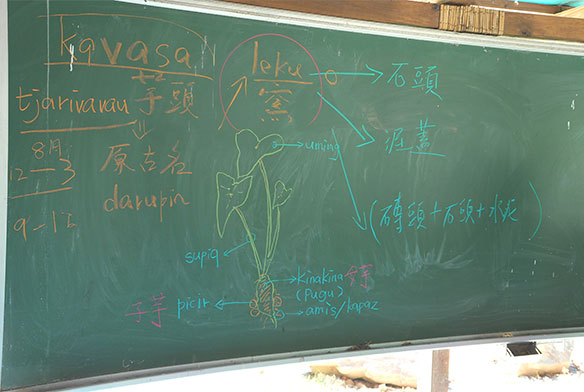 kavasa
tjarivavau 芋頭
8月
12—3
9-12
原古名
darupin
leku
窯
石頭
泥蓋
(磚頭+石頭+水泥)
uming
supiq
kinakina 母芋
(pugu)
子芋 picir
amis/kapaz